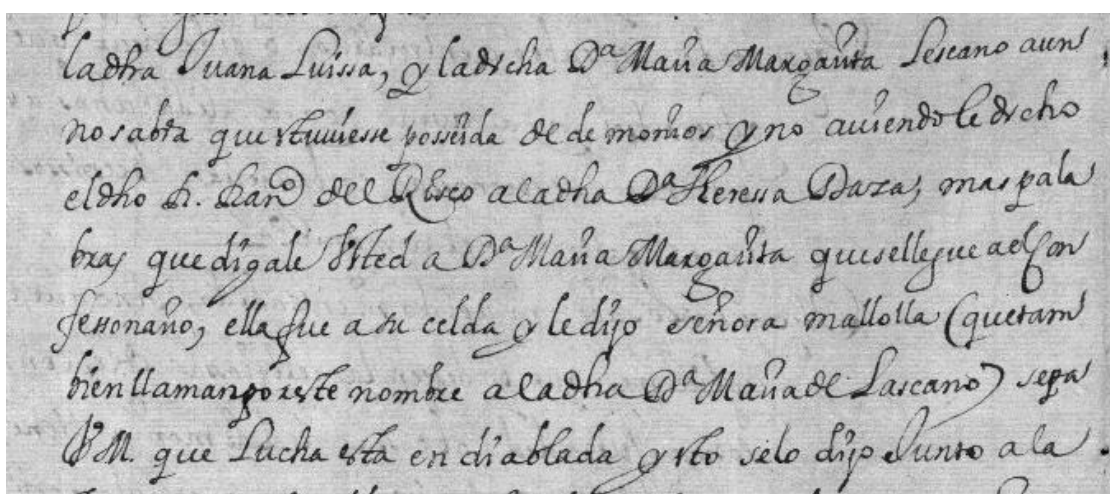 ladha Juana Luissa, y ladicha Dª Maria Margarita Lescano aun
no sabia que estuuiesse posseida de demonios y no auiendole dicho
el dho P. Franco del Risco a la dha Dª Theressa Daza, mas pala
bras que digale Usted a Dª Maria Margarita que se llegue a el Con
fessonario, ella fue a su celda y le dijo señora mallolla (que tam
bien llaman por este nombre a la dha Dª Maria de Lascano) sepa
V.M. que Lucha esta endiablada y esto se lo dijo Junto a la